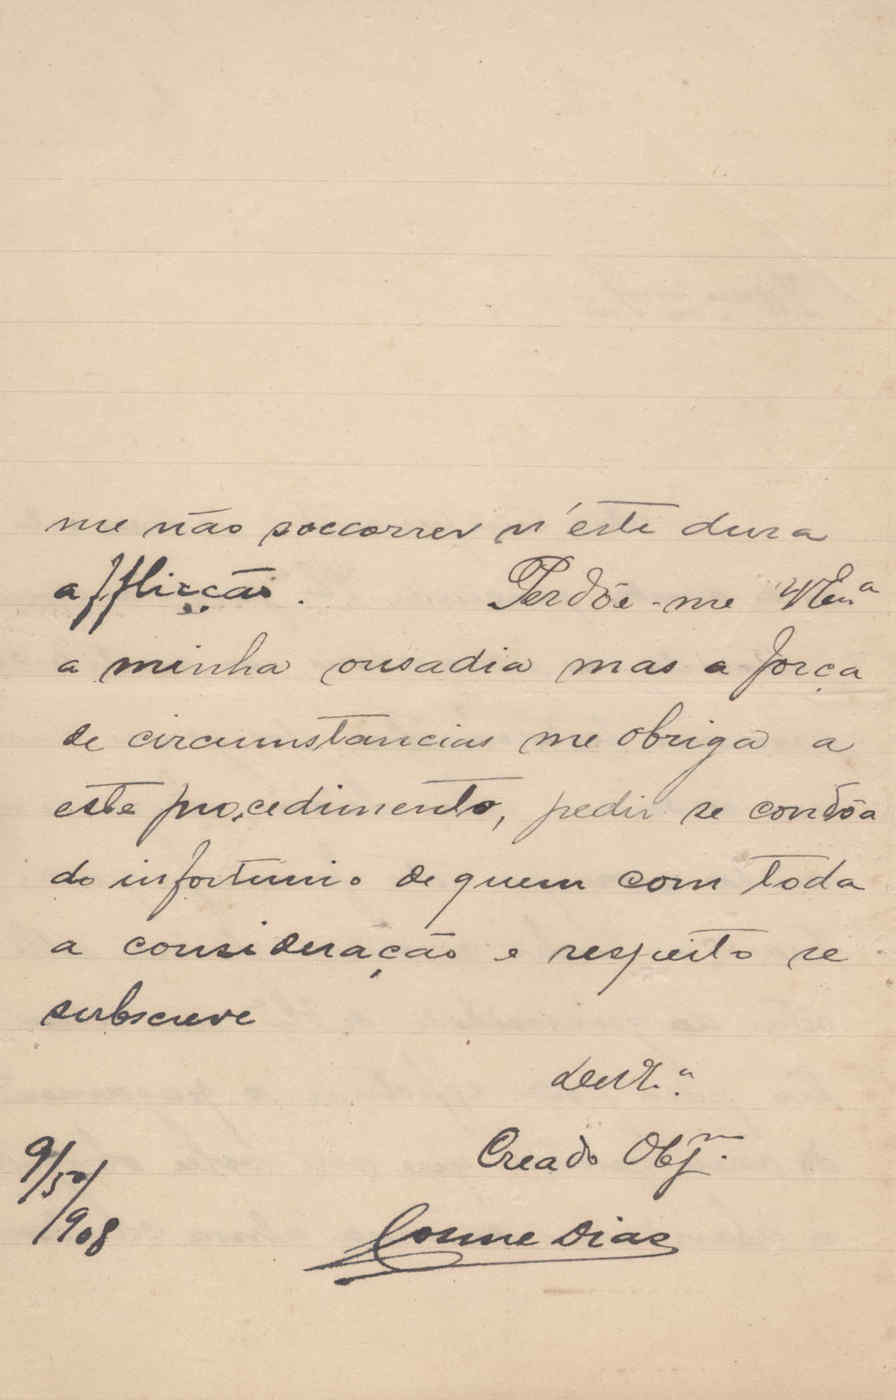 me não soccorrer n'este dura
afflicção. Perdôe-me VExª
a minha ousadia mas a força
de circumstancias me obriga a
este procedimento, pedir se condôa
do infortunio de quem com toda
a consideração e respeito se
subscreve
Creado Obj.
9/5º/908
Cosme Dias